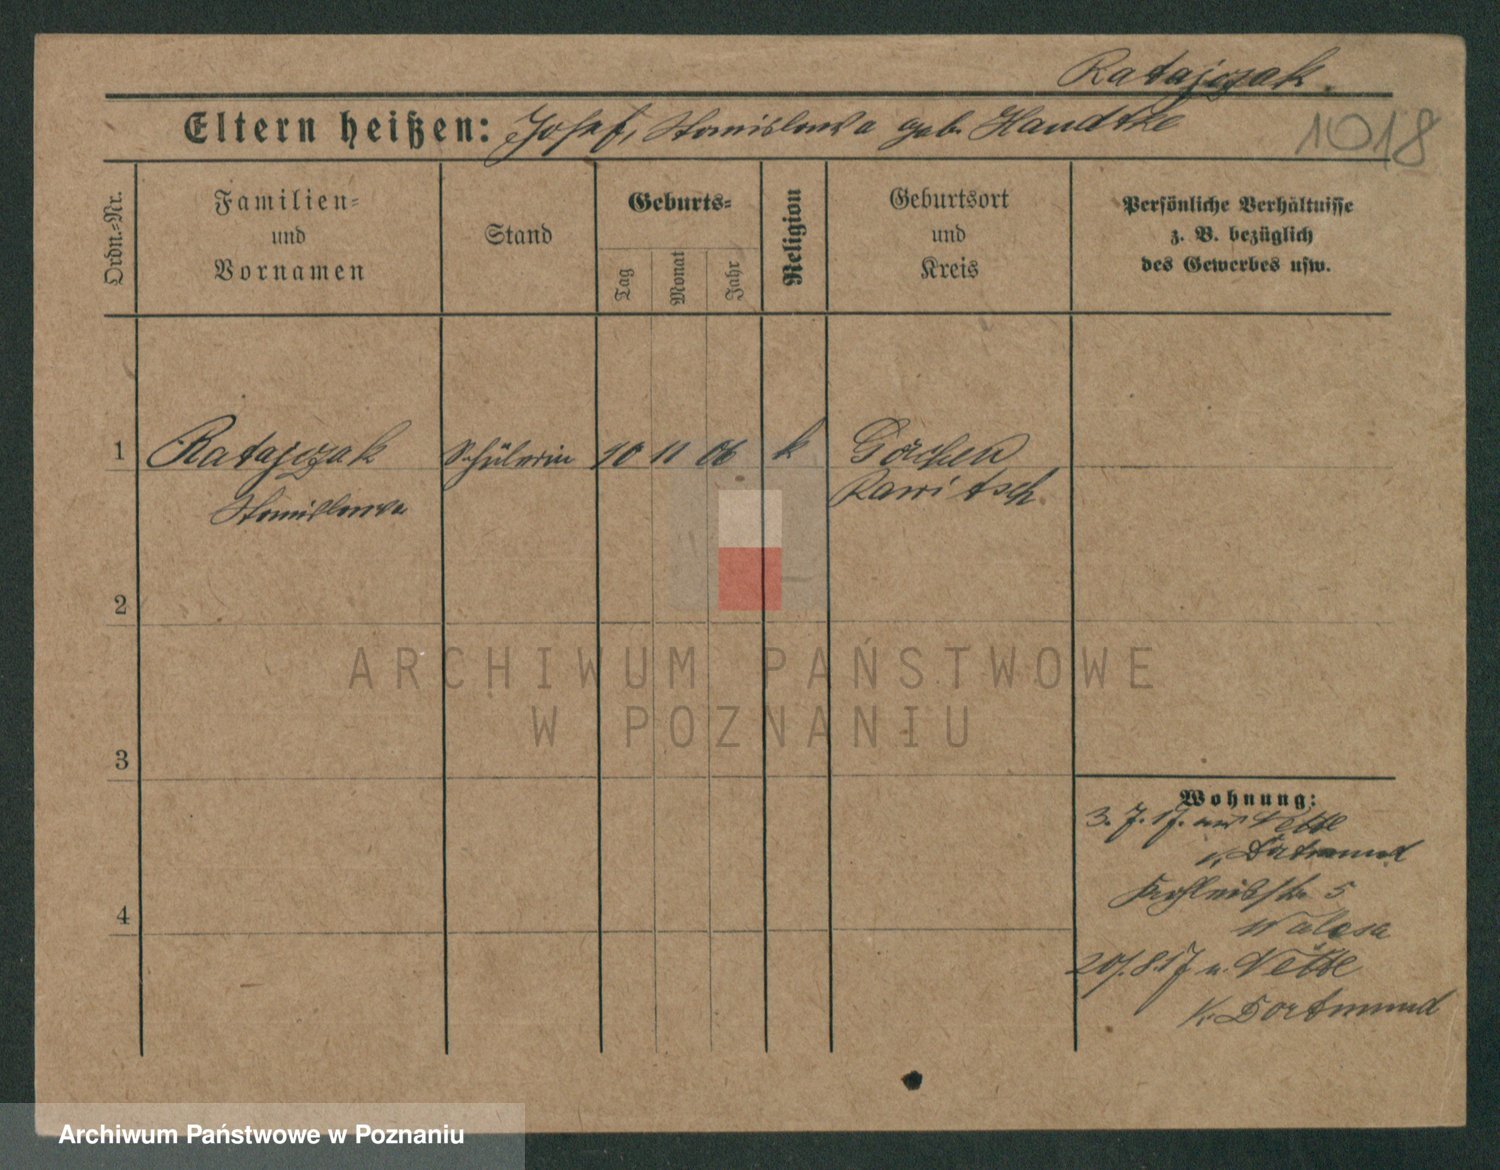 Ratajczak.
Eltern heißen: Josef, Stanislowa geb. Handtke
1018
Ordn.-Nr.
Familien-
und
Vornamen
Stand
Geburts-
Tag
Monat
Jahr
Religion
Geburtsort
und
Kreis
Persönliche Verhältnisse
z. B. bezüglich
des Gewerbes usw.
1 Ratajczak Schülerin 10 11 06 k Görchen
Stanislowa Rawitsch.
2
ARCHIWUM PAŃSTWOWE
W POZNANIU
3
Wohnung:
3. 7. 17.
Dortmund
5
4
20/. 8. 17 n.
K. Dortmund
Archiwum Państwowe w Poznaniu